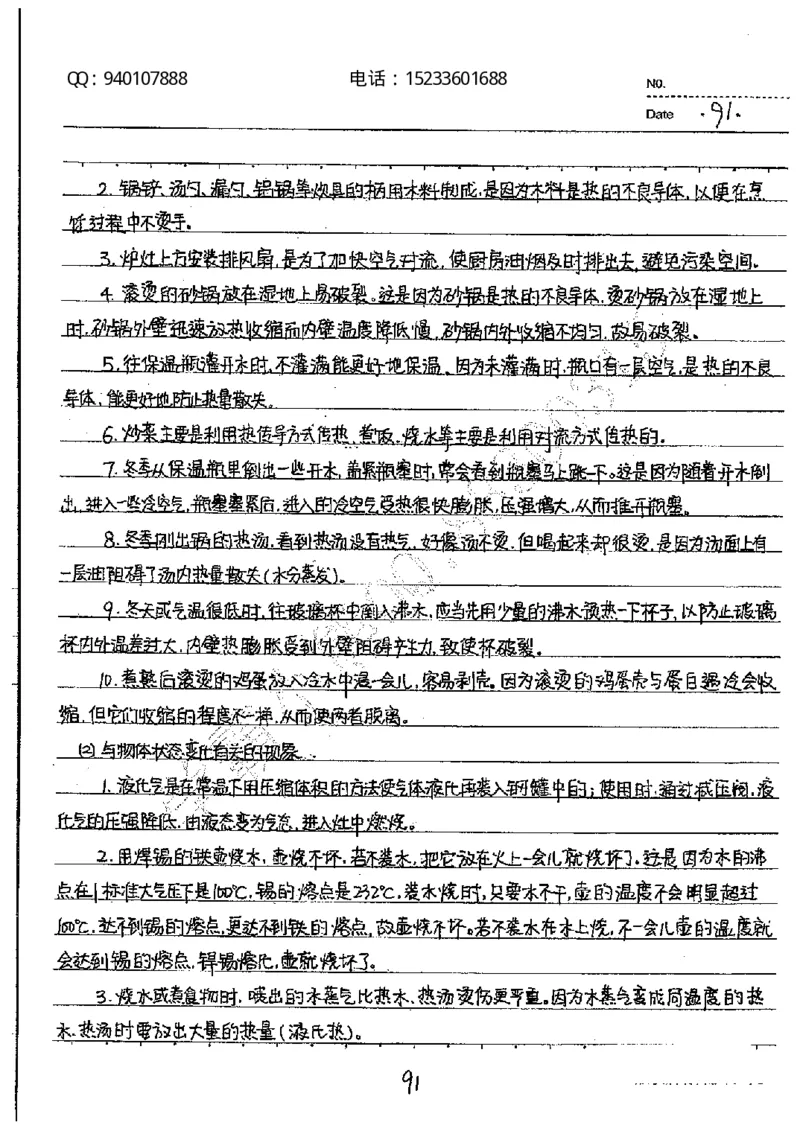 QQ：940107888
电话：15233601688
No.
Date ·91·
2. 锅铲、汤勺、漏勺、铝锅等炊具的柄用木料制成，是因为木料是热的不良导体，以便在烹
饪过程中不烫手。
3. 炉灶上方安装排风扇，是为了加快空气对流，使厨房油烟及时排出去，避免污染空间。
4. 滚烫的砂锅放在湿地上易破裂。这是因为砂锅是热的不良导体，烫砂锅放在湿地上
时，砂锅外壁迅速放热收缩而内壁温度降低慢，砂锅内外收缩不均匀，故易破裂。
5. 往保温瓶灌开水时，不灌满能更好地保温。因为未灌满时，瓶口有一层空气，是热的不良
导体，能更好地防止热量散失。
6. 炒菜主要是利用热传导方式传热，煮饭、烧水等主要是利用对流方式传热的。
7. 冬季从保温瓶里倒出一些开水，盖紧瓶塞时，常会看到瓶塞马上跳一下。这是因为随着开水倒
出，进入一些冷空气，瓶塞塞紧后，进入的冷空气受热很快膨胀，压强增大，从而推开瓶塞。
8. 冬季刚出锅的热汤，看到热汤没有热气，好像汤不烫，但喝起来却很烫，是因为汤面上有
一层油阻碍了汤内热量散失（水分蒸发）。
9. 冬天或气温很低时，往玻璃杯中倒入沸水，应当先用少量的沸水预热一下杯子，以防止玻璃
杯内外温差过大，内壁热膨胀受到外壁阻碍产生力，致使杯破裂。
10. 煮熟后滚烫的鸡蛋放入冷水中浸一会儿，容易剥壳。因为滚烫的鸡蛋壳与蛋白遇冷会收
缩，但它们收缩的程度不一样，从而使两者脱离。
(2) 与物体状态变化有关的现象
1. 液化气是在常温下用压缩体积的方法使气体液化再装入钢罐中的；使用时，通过减压阀，液
化气的压强降低，由液态变为气态，进入灶中燃烧。
2. 用焊锡的铁壶烧水，壶烧不坏，若不装水，把它放在火上一会儿就烧坏了。这是因为水的沸
点在1标准大气压下是100℃，锡的熔点是232℃，装水烧时，只要水不干，壶的温度不会明显超过
100℃，达不到锡的熔点，更达不到铁的熔点，故壶烧不坏。若不装水在木上烧，不一会儿壶的温度就
会达到锡的熔点，焊锡熔化，壶就烧坏了。
3. 烧水或煮食物时，喷出的水蒸气比热水、热汤烫伤更严重。因为水蒸气变成同温度的热
水、热汤时要放出大量的热量（液化热）。
91